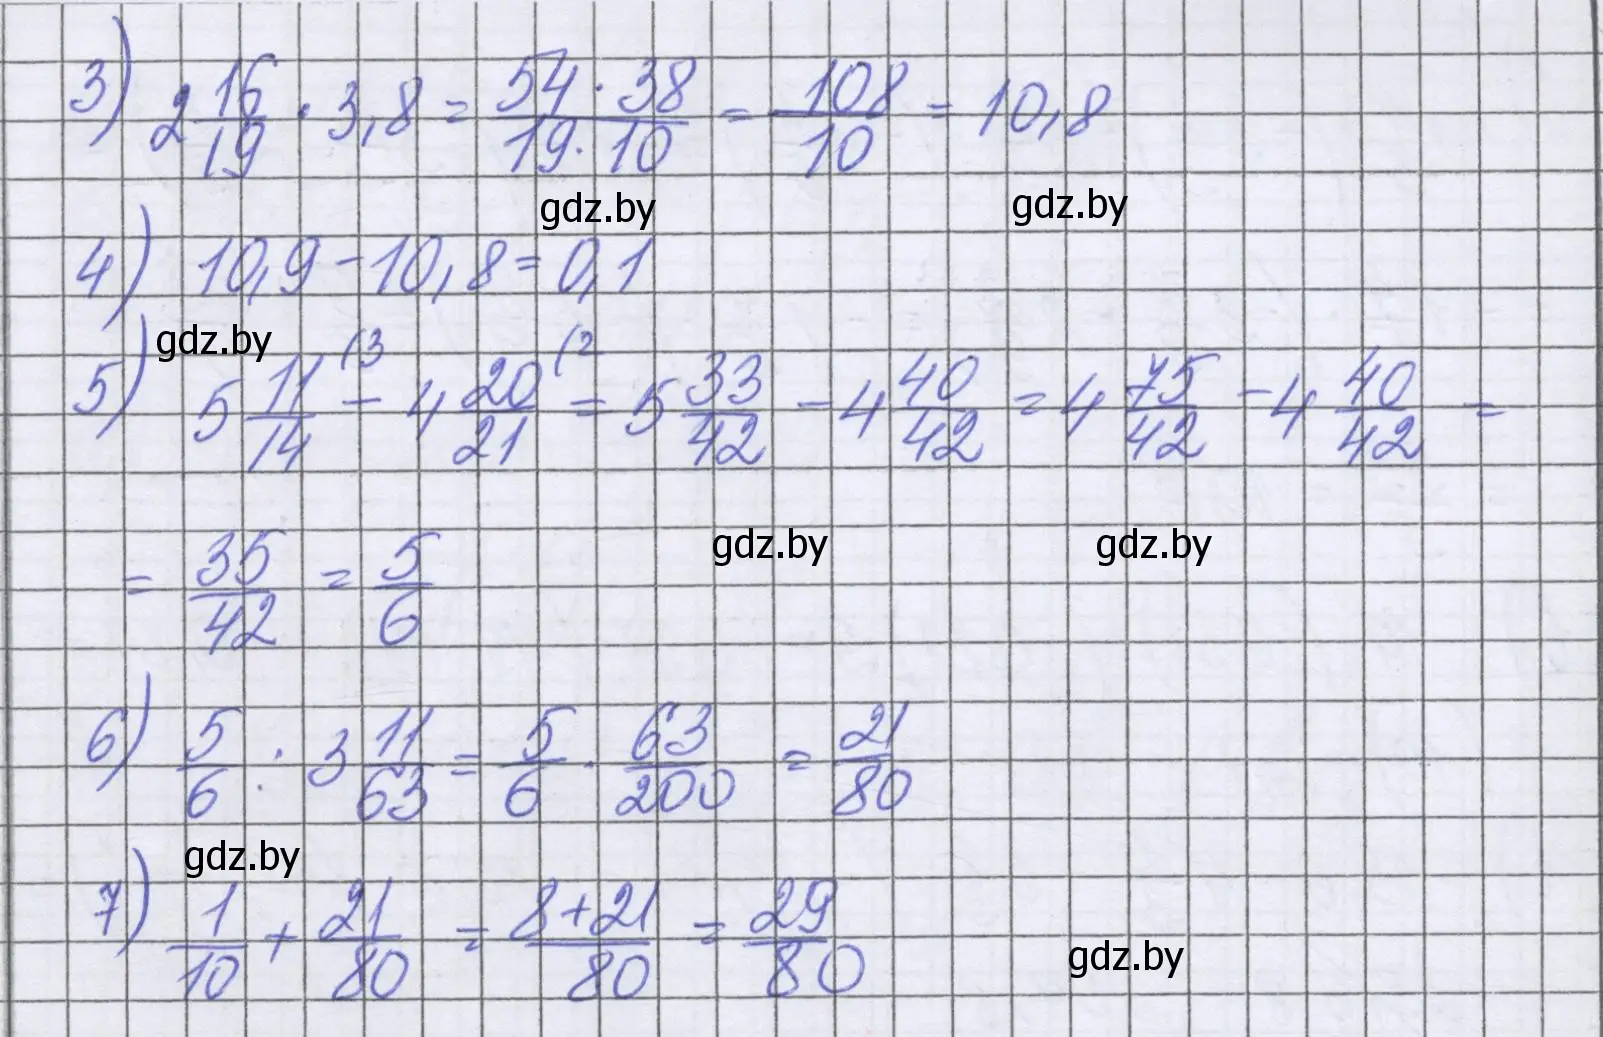 3) 2 16/19 · 3,8 = 54 · 38 / 19 · 10 = 108/10 = 10,8
gdz.by gdz.by
4) 10,9 - 10,8 = 0,1
gdz.by
5) 5 11/14 (3 - 4 20/21 (2 = 5 33/42 - 4 40/42 = 4 75/42 - 4 40/42 =
gdz.by gdz.by
= 35/42 = 5/6
6) 5/6 : 3 11/63 = 5/6 · 63/200 = 21/80
gdz.by
7) 1/10 + 21/80 = 8+21/80 = 29/80
gdz.by